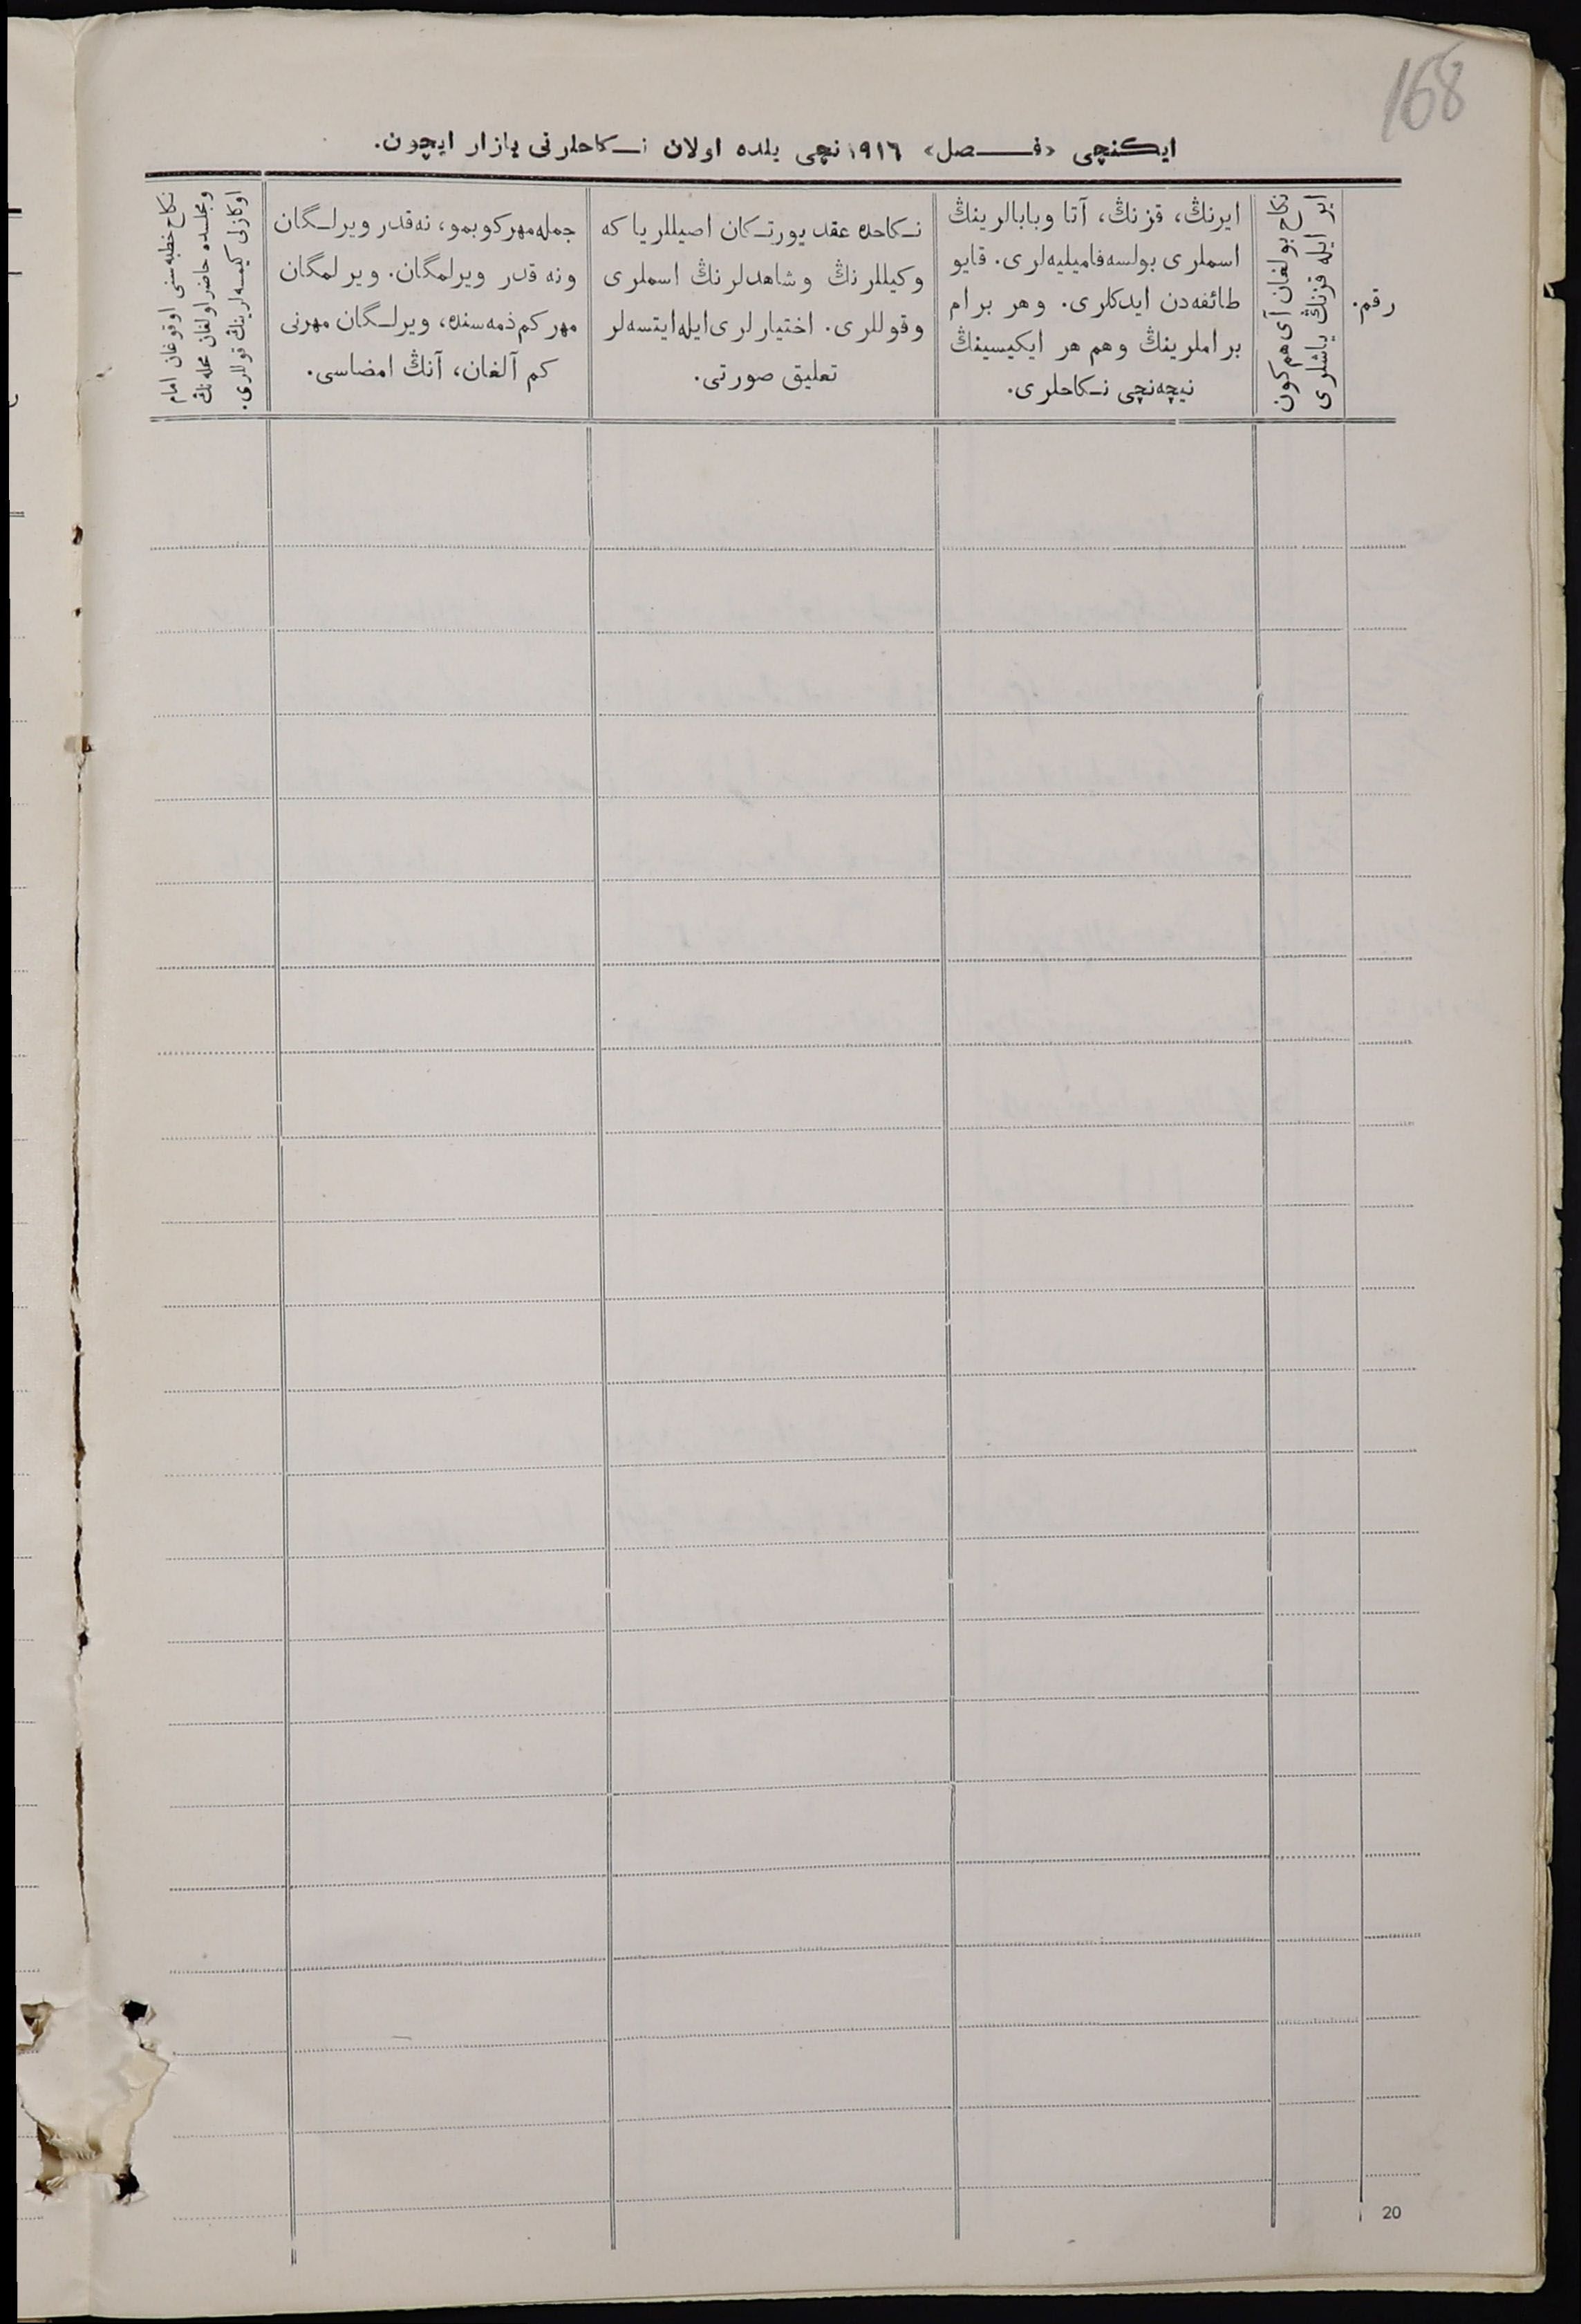 168
ایکنچی «فصل» ١٩١٦ نچی یلده اولان نکاحلرنی یازار ایچون.
رقم.
ایر ایله قزنڭ یاشلری
نکاح بولغان آی هم کون
ایرنڭ، قزنڭ، آتا وبابالرینڭ
اسملری بولسه فامیلیه‌لری. قایو
طائفه‌دن ایدکلری. وهر برام
براملرینڭ وهم هر ایکیسینڭ
نیچه‌نچی نکاحلری.
نکاحده عقد یورتکان اصیللر یا که
وکیللرنڭ وشاهدلرنڭ اسملری
وقوللری. اختیارلری ایله ایتسه‌لر
تعلیق صورتی.
جمله مهر کوبمو، نه‌قدر ویرلگان
ونه قدر ویرلمگان. ویرلمگان
مهر کم ذمه‌سنده، ویرلگان مهرنی
کم آلغان، آنڭ امضاسی.
نکاح خطبه‌سنی اوقوغان امام
ومجلسده حاضر اولغان محله‌نڭ
اوکازلی کیمسه‌لرینڭ قوللری.
20